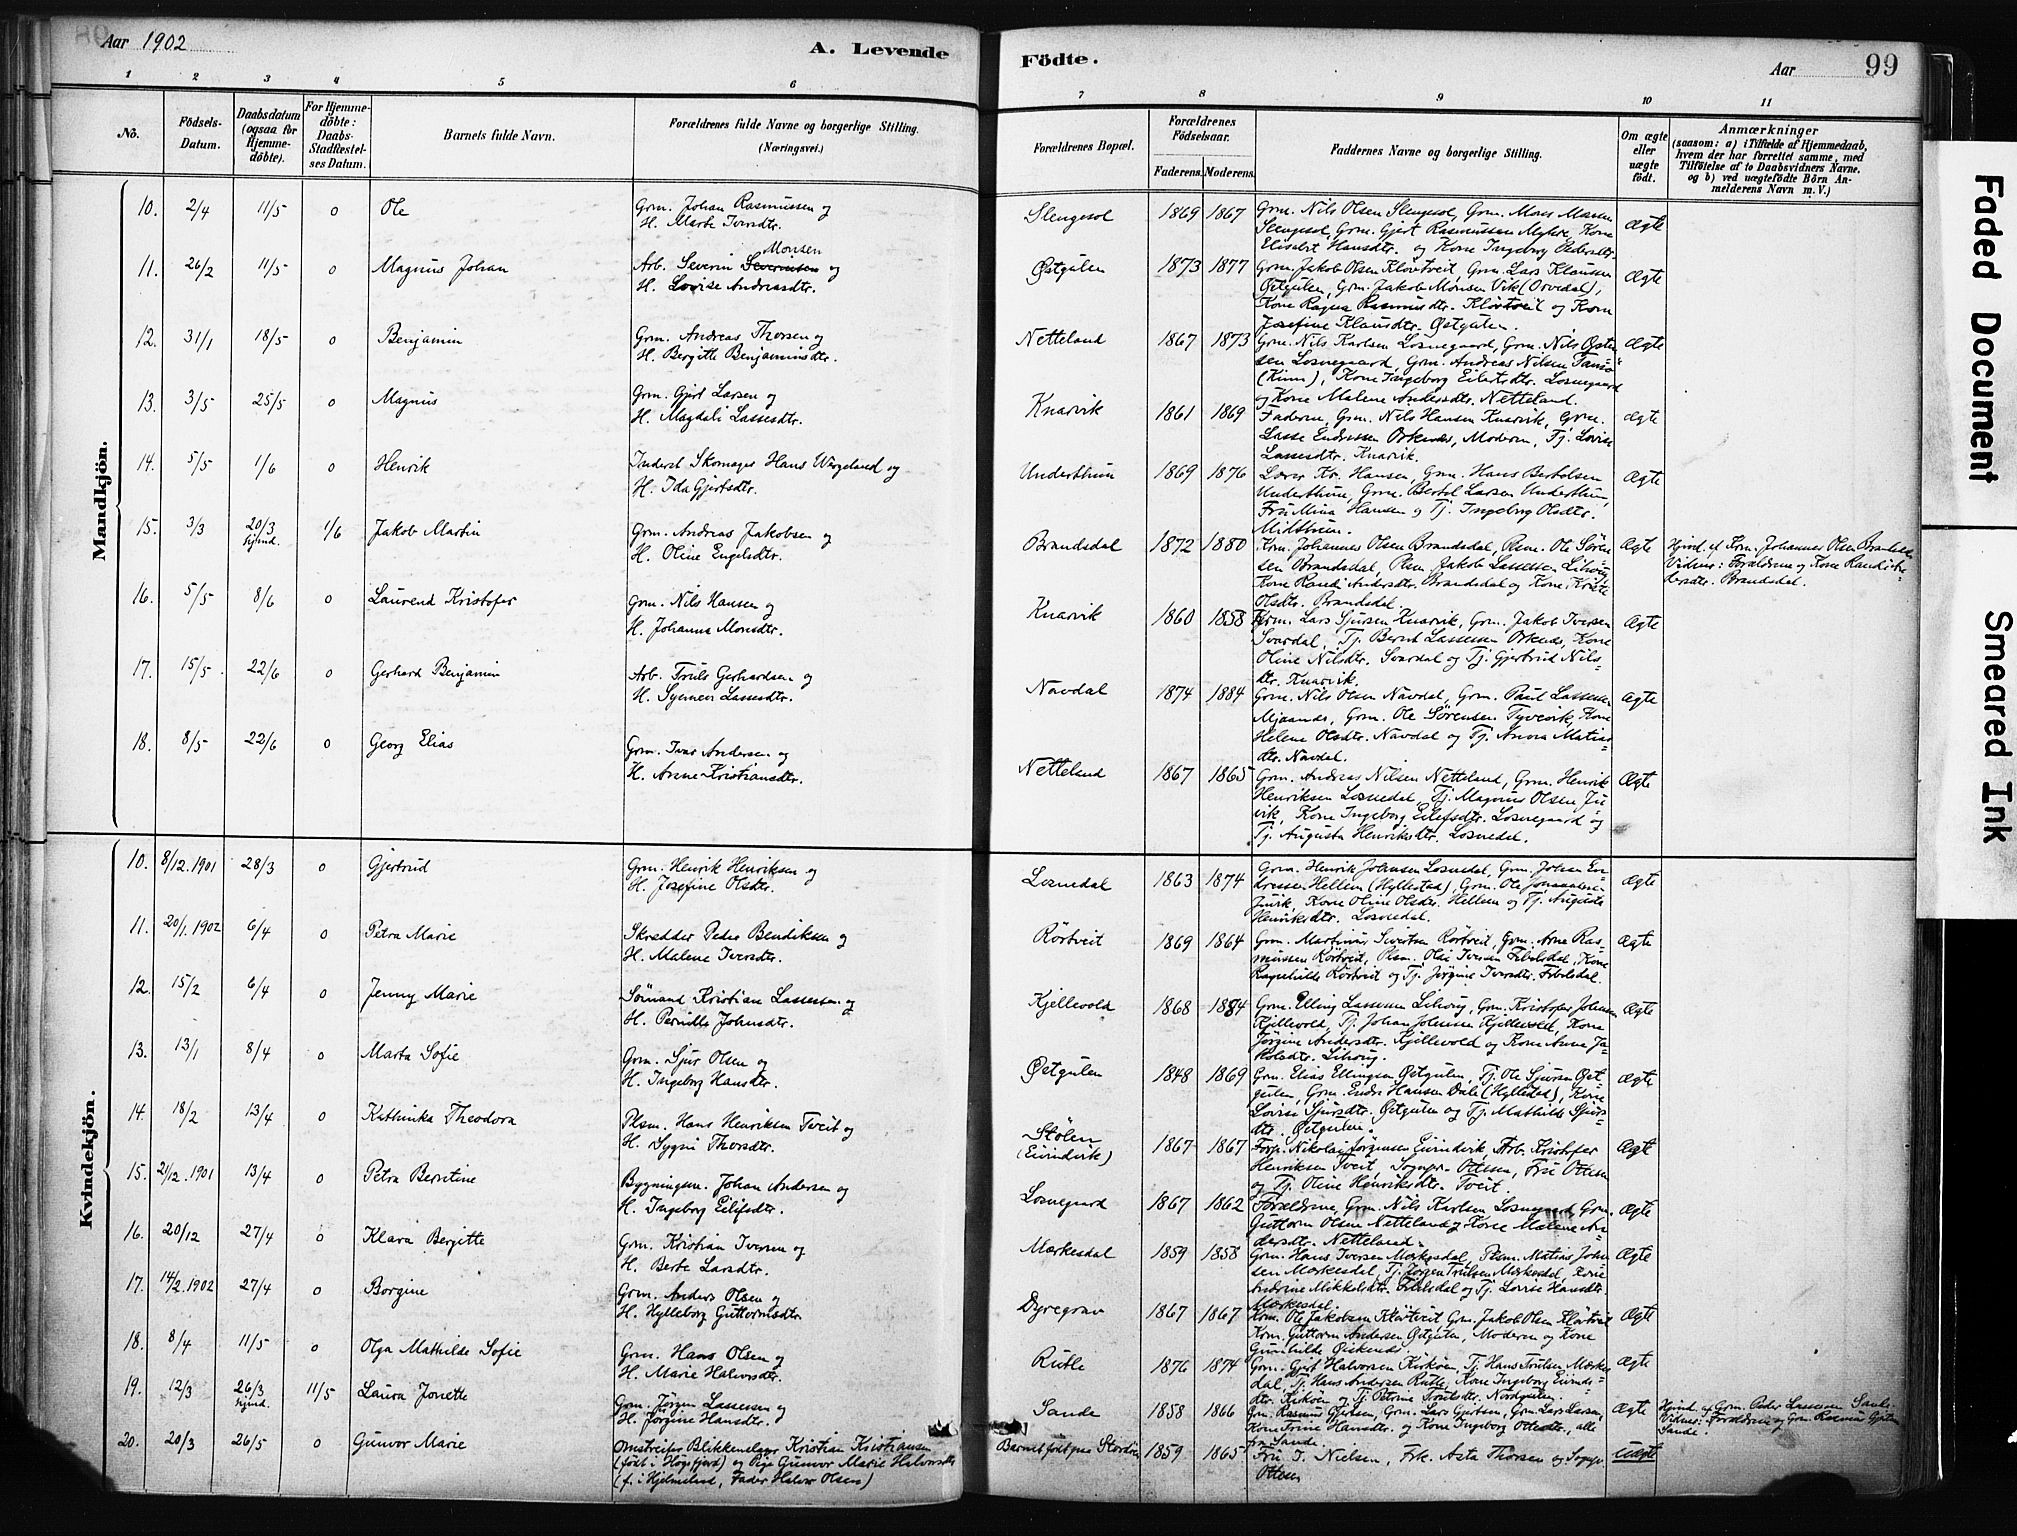 Aar 1902
A. Levende
1 2 3 4 5 6
No.
Födsels-
Datum.
Daabsdatum
(ogsaa for
Hjemme-
döbte).
For Hjemme-
döbte:
Daabs-
Stadfæstel-
ses Datum.
Barnets fulde Navn.
Forældrenes fulde Navne og borgerlige Stilling.
(Næringsvei.)
Mandkjön.
10. 2/4 11/5 0 Ole Grm. Johan Rasmussen og
H. Marte Iversdtr.
Monsen
11. 26/2 11/5 0 Magnus Johan Arb. Severin Severinsen og
H. Lovise Andreasdtr.
12. 31/1 18/5 0 Benjamin Grm. Andreas Thorsen og
H. Bergitte Benjaminsdtr.
13. 3/5 25/5 0 Magnus Grm. Gjert Larsen og
H. Magdali Lassesdtr.
14. 5/5 1/6 0 Henrik Inderst Skomager Hans Wergeland og
H. Ida Gjertsdtr.
15. 3/3 20/3 1/6 Jakob Martin Grm. Andreas Jakobsen og
Hjmd.
H. Oline Engelsdtr.
16. 5/5 8/6 0 Laurend Kristofer Grm. Nils Hansen og
H. Johanna Monsdtr.
17. 15/5 22/6 0 Gerhard Benjamin Arb. Truls Gerhardsen og
H. Synneve Lassesdtr.
18. 8/5 22/6 0 Georg Elias Grm. Ivar Andersen og
H. Anne Kristiansdtr.
Kvindekjön.
10. 8/12.1901 28/3 0 Gjertrud Grm. Henrik Henriksen og
H. Josefine Olsdtr.
11. 20/1.1902 6/4 0 Petra Marie Skrædder Peder Bendiksen og
H. Malene Iversdtr.
12. 15/2 6/4 0 Jenny Marie Sømand Kristian Lassessen og
H. Pernille Johnsdtr.
13. 13/1 8/4 0 Marta Sofie Grm. Sjur Olsen og
H. Ingeborg Hansdtr.
14. 18/2 13/4 0 Kathinka Theodora Plsm. Hans Henriksen Tveit og
H. Sygni Thorsdtr.
15. 21/12.1901 13/4 0 Petra Berntine Bygningsm. Johan Andersen og
H. Ingeborg Eilifsdtr.
16. 20/12 27/4 0 Klara Bergitte Grm. Kristian Iversen og
H. Berte Larsdtr.
17. 14/2.1902 27/4 0 Borgine Grm. Anders Olsen og
H. Hylleborg Guttormsdtr.
18. 8/4 11/5 0 Olga Mathilde Sofie Grm. Hans Olsen og
H. Marie Halvorsdtr.
19. 12/3 26/3 11/5 Laura Jonette Grm. Jørgen Lassessen og
Hjmd.
H. Jørgine Hansdtr.
20. 20/3 26/5 0 Gunvor Marie Omstreifer Blikkenslager Kristian Kristiansen
(født i Høgsfjord) og Pige Gunvor Marie Halvorsdtr.
(f. i Hjelmeland, Fader Halvor Olsen)
Födte.
Aar
99
7 8 9 10 11
Forældrenes Bopæl.
Forældrenes
Födselsaar.
Faderens. Moderens.
Faddernes Navne og borgerlige Stilling.
Om ægte
eller
uægte
födt.
Anmærkninger
(saasom: a) i Tilfælde af Hjemmedaab,
hvem der har forrettet samme, med
Tilföielse af to Daabsvidners Navne,
og b) ved uægtefödte Börn An-
melderens Navn m. V.)
Slengesol 1869 1867 Grm. Nils Olsen Slengesol, Grm. Mons Monsen Ægte
Slengesol, Grm. Gjert Rasmussen Kone
Elisabet Hansdtr. og Kone Ingeborg Pedersdtr.
Østgulen 1873 1877 Grm. Jakob Olsen Kløvtveit, Grm. Lars Klausen Ægte
Østgulen, Grm. Jakob Monsen Vik (Orvedal),
Kone Ragna Rasmusdtr. Kløvtveit og Kone
Josefine Klausdtr. Østgulen.
Netteland 1867 1873 Grm. Nils Karlsen Losnegaard, Grm. Nils Øster- Ægte
sen Losnegaard, Grm. Andreas Nilsen Tansø
(Kinn), Kone Ingeborg Eilifsdtr. Losnegaard
og Kone Malene Andersdtr. Netteland.
Knarvik 1861 1869 Faderen, Grm. Nils Hansen Knarvik, Grm. Ægte
Lasse Endresen Orkenæs, Moderen, Tj. Lovise
Lassesdtr. Knarvik.
Underthun 1869 1876 Lærer Kr. Hansen, Grm. Hans Bertolsen Ægte
Underthun, Grm. Bertel Larsen Underthun,
Fru Mina Hansen og Tj. Ingeborg Olsdtr.
Midtthun.
Brandsdal 1872 1880 Krm. Johannes Olsen Brandsdal, Plsm. Ole Søren- Ægte Hjmd. af Krm. Johannes Olsen Brandsdal
sen Brandsdal, Plsm. Jakob Lassessen Lihoug Vidner: Forældrene og Kone Randi An-
Kone Randi Andersdtr. Brandsdal og Kone dersdtr. Brandsdal.
Olsdtr. Brandsdal.
Knarvik 1860 1858 Grm. Lars Sjursen Knarvik, Grm. Jakob Iversen Ægte
Svardal, Tj. Bernt Lassessen Orkenæs, Kone
Oline Nilsdtr. Svardal og Tj. Gjertrud Nils-
dtr. Knarvik.
Navdal 1874 1884 Grm. Nils Olsen Navdal, Grm. Paul Lassessen Ægte
Mjaanæs, Grm. Ole Sørensen Tyvevik, Kone
Helene Olsdtr. Navdal og Tj. Anna Matias-
dtr. Navdal.
Netteland 1867 1865 Grm. Andreas Nilsen Netteland, Grm. Henrik Ægte
Henriksen Losnedal, Tj. Magnus Olsen Ju-
vik, Kone Ingeborg Eilifsdtr. Losnegaard og
Tj. Augusta Henriksdtr. Losnedal.
Losnedal 1863 1874 Grm. Henrik Johansen Losnedal, Grm. Johan En- Ægte
dressen Hellem (Hyllestad), Grm. Ole
Juvik, Kone Oline Olsdtr. Hellem og Tj. Auguste
Henriksdtr. Losnedal.
Rörtveit 1869 1864 Grm. Martinus Sivertsen Rörtveit, Grm. Arne Ras- Ægte
mussen Rörtveit, Plsm. Ole Iversen Kone
Ragnhilde Rörtveit og Tj. Jørgine Iversdtr.
Kjellevold 1868 1884 Grm. Elling Lassessen Lihoug, Grm. Kristofer Johansen Ægte
Kjellevold, Tj. Johan Johnsen Kjellevold, Kone
Jørgine Andersdtr. Kjellevold og Kone Anne Ja-
kobsdtr. Lihoug.
Østgulen 1848 1869 Grm. Elias Ellingsen Østgulen, Tj. Ole Sjursen Øst- Ægte
gulen, Grm. Endre Hansen Dale (Hyllestad), Kone
Lovise Sjursdtr. Østgulen og Tj. Mathilde Sjurs-
dtr. Østgulen.
Stølen 1867 1867 Forp. Nikolai Jørgensen Eivindvik, Arb. Kristofer Ægte
(Eivindvik) Henriksen Tveit, Sognepr. Ottesen, Fru Ottesen
og Tj. Oline Henriksdtr. Tveit.
Losnegaard 1867 1862 Forældrene, Grm. Nils Karlsen Losnegaard, Grm. Ægte
Guttorm Olsen Netteland og Kone Malene An-
dersdtr. Netteland.
Mærkesdal 1859 1858 Grm. Hans Iversen Mærkesdal, Plsm. Matias John- Ægte
sen Mærkesdal, Tj. Jørgen Trulsen Mærkesdal, Kone
Andrine Mikkelsdtr. og Tj. Lovise Hansdtr.
Mærkesdal.
Dyregrav 1867 1867 Krm. Ole Jakobsen Kløvtveit, Grm. Jakob Olsen Kløvtveit Ægte
Krm. Guttorm Andersen Østgulen, Moderen og Kone
Gunhilde
Rutle 1876 1874 Grm. Gjert Halvorsen Kirkøen, Tj. Hans Trulsen Mærkes- Ægte
dal, Tj. Hans Andersen Rutle, Kone Ingeborg Eivinds-
dtr. Kirkøen og Tj. Petrine Trulsdtr. Nordgulen.
Sande 1858 1866 Grm. Rasmus Gjertsen, Grm. Lars Gjertsen, Grm. Lars Larsen, Ægte Hjmd. af Grm. Peder Lassessen Sande.
Kone Trine Hansdtr. og Kone Ingeborg Ottesdtr., alle Vidner: Forældrene og Grm. Rasmus Gjertsen
fra Sande. Sande.
Barnet født paa 1859 1865 Fru T. Nielsen, Frk. Asta Thorsen og Sognepr. Uægte
Ottesen
Faded Document
Smeared Ink